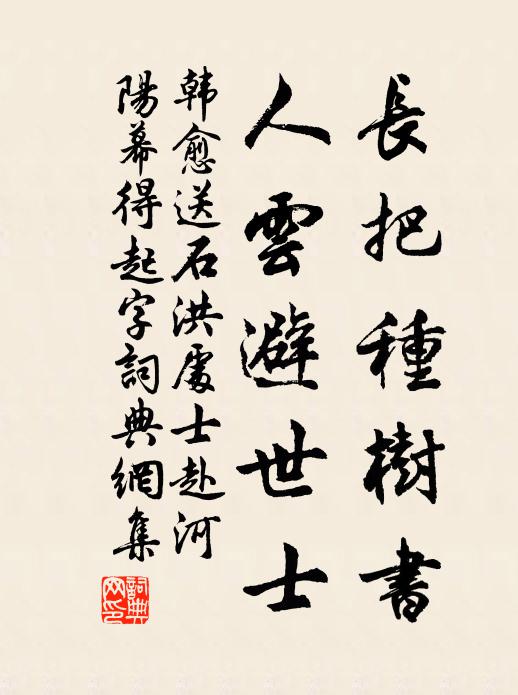 長把種樹書
人雲避世士
韓愈送石洪處士赴河
陽幕得起字詞典網集
詞典网印